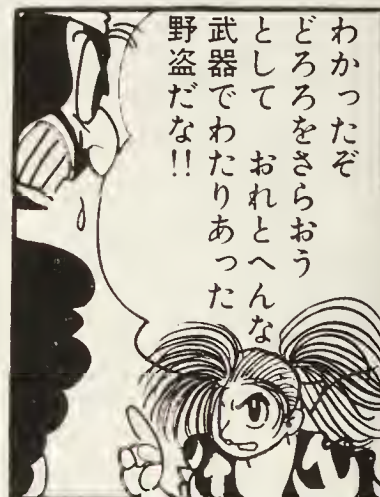 わかったぞ
どろろをさらおう
として　おれとへんな
武器でわたりあった
野盗だな!!